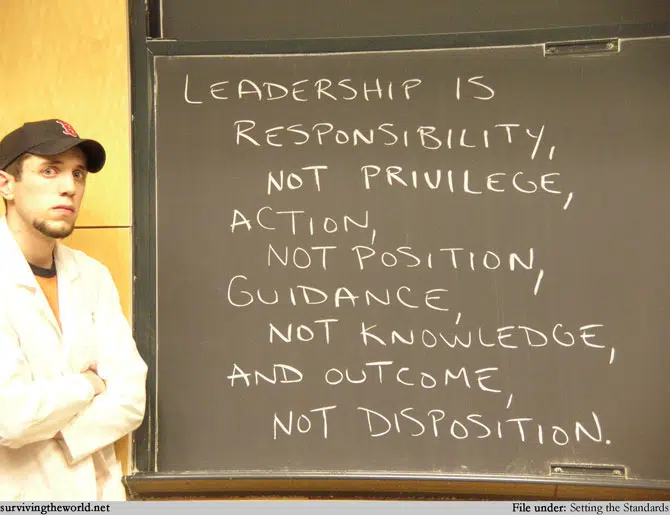 LEADERSHIP IS
RESPONSIBILITY,
NOT PRIVILEGE,
ACTION,
NOT POSITION,
GUIDANCE,
NOT KNOWLEDGE,
AND OUTCOME,
NOT DISPOSITION.
B
survivingtheworld.net
File under: Setting the Standards